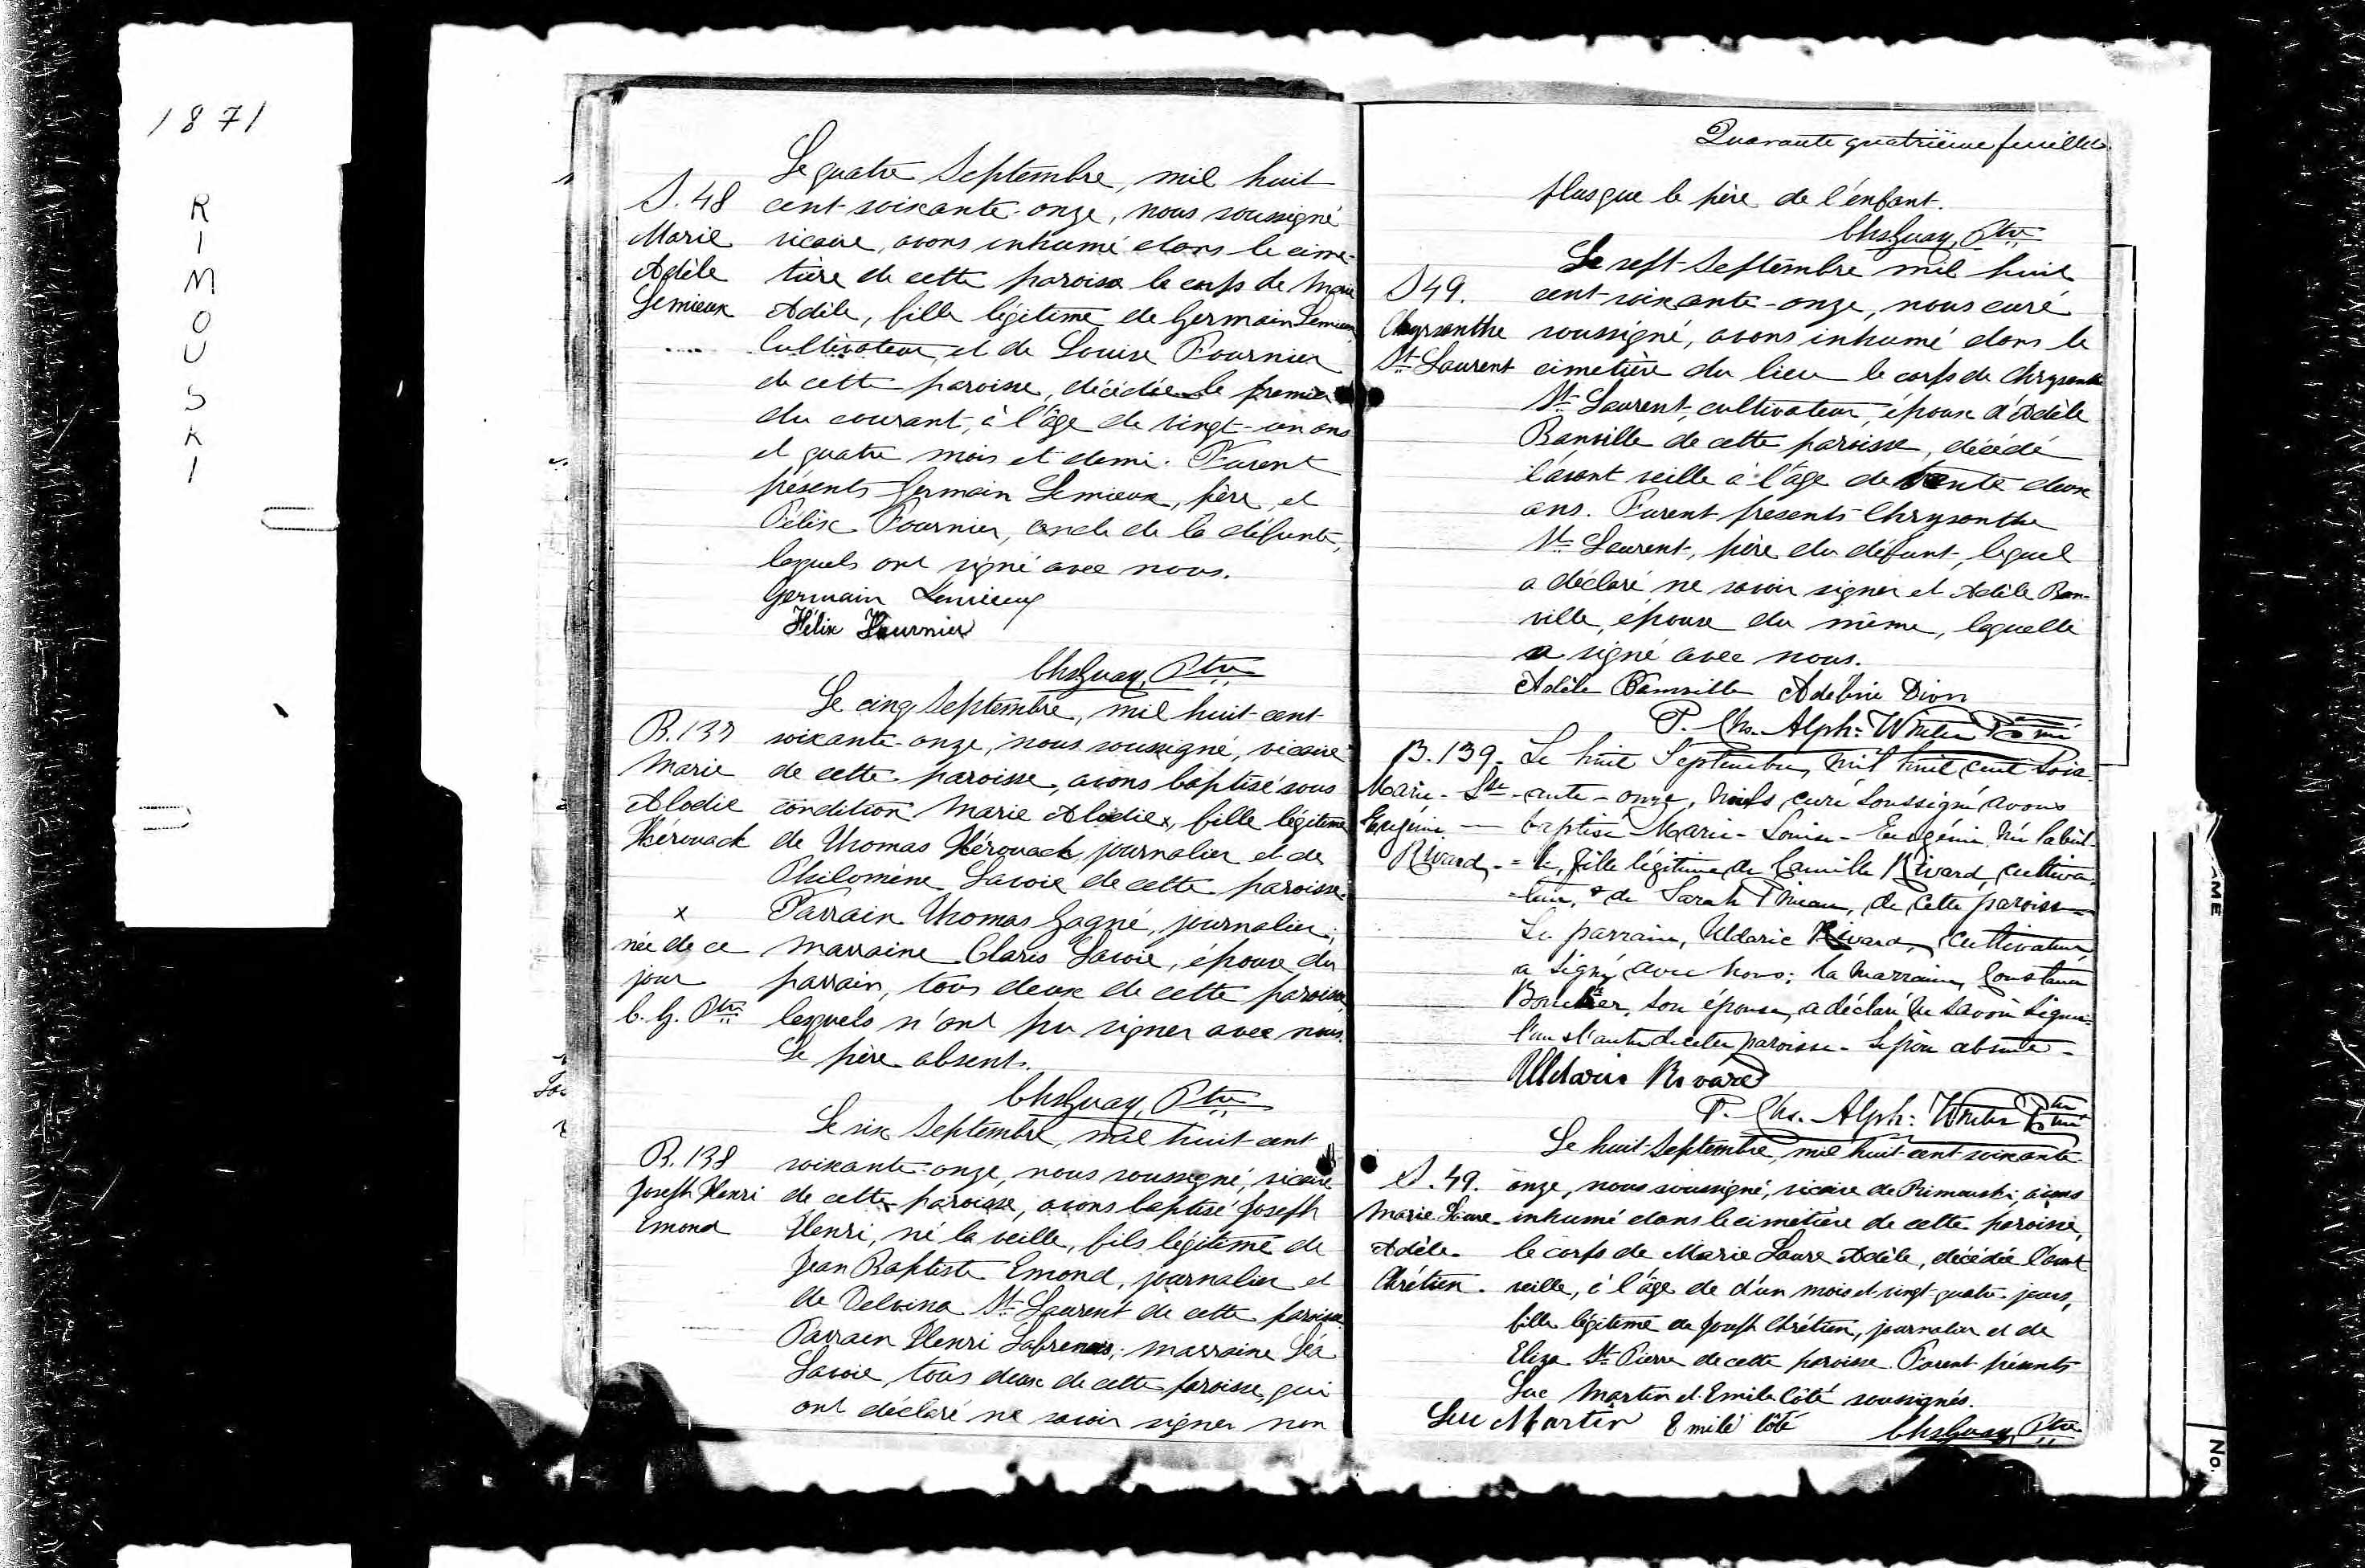 1871
RIMOUSKI
Le quatre Septembre, mil huit
S. 48 cent soixante-onze, nous soussigné
Marie vicaire, avons inhumé dans le cime-
Adèle tière de cette paroisse le corps de Marie
Lemieux Adèle, fille légitime de Germain Lemieux
Cultivateur, et de Louise Fournier
de cette paroisse, décédée le premier
du courant, à l'âge de vingt-un ans
et quatre mois et demi. Furent
présents Germain Lemieux, père, et
Félix Fournier, oncle de la défunte,
lesquels ont signé avec nous.
Germain Lemieux
Félix Fournier
Chs Guay, Ptre
Le cinq Septembre, mil huit-cent
B. 137 soixante-onze, nous soussigné, vicaire
Marie de cette paroisse, avons baptisé sous
Alodie condition Marie Alodie x, fille légitime
Kérouack de Thomas Kérouack, journalier et de
Philomène Savoie de cette paroisse.
x Parrain Thomas Gagné, journalier,
née de ce marraine Claris Savoie, épouse du
jour parrain, tous deux de cette paroisse,
C. G. Ptre lesquels n'ont pu signer avec nous.
Le père absent.
Chs Guay, Ptre
Le six Septembre, mil huit-cent
B. 138 soixante-onze, nous soussigné, vicaire
Joseph Henri de cette paroisse, avons baptisé Joseph
Emond Henri, né la veille, fils légitime de
Jean Baptiste Emond, journalier et
de Delvina St Laurent de cette paroisse.
Parrain Henri; marraine Léa
Savoie tous deux de cette paroisse, qui
ont déclaré ne savoir signer non
Quarante quatrième feuillet.
plus que le père de l'enfant.
Chs Guay, Ptre
Le sept Septembre mil huit
S 49. cent-soixante-onze, nous curé
Chrysanthe soussigné, avons inhumé dans le
St Laurent cimetière du lieu le corps de Chrysanthe
St Laurent, cultivateur, époux d'Adèle
Banville de cette paroisse, décédé
l'avant veille à l'âge de trente deux
ans. Furent présents Chrysanthe
St Laurent, père du défunt, lequel
a déclaré ne savoir signer et Adèle Ban-
ville, épouse du même, laquelle
a signé avec nous.
Adèle Banville Adeline Dion
P. Chs. Alph: Winter Ptre Curé
B. 139. Le huit Septembre, mil huit cent soix-
Marie-Lse -ante-onze, nous curé soussigné avons
Eugénie baptisé Marie-Louise-Eugénie née
Rivard fille légitime de Camille Rivard, cultiva-
-teur, & de Sarah, de cette paroisse
Le parrain, Uldaric Rivard, cultivateur,
a signé avec nous; la marraine, Constance
Boucher, son épouse, a déclaré ne savoir signer
l'un & l'autre de cette paroisse. Le père absent.
Uldaric Rivard
P. Chs. Alph: Winter Ptre Curé
Le huit Septembre, mil huit-cent soixante-
S. 49. onze, nous soussigné, vicaire de Rimouski, avons
Marie Laure inhumé dans le cimetière de cette paroisse,
Adèle le corps de Marie Laure Adèle, décédée l'avant
Chrétien. veille, à l'âge de d'un mois et vingt-quatre jours,
fille légitime de Joseph Chrétien, journalier et de
Eliza St Pierre de cette paroisse. Furent présents
Luc Martin et Emile Côté soussignés.
Luc Martin Emile Côté Chs Guay, Ptre
NAME
No.